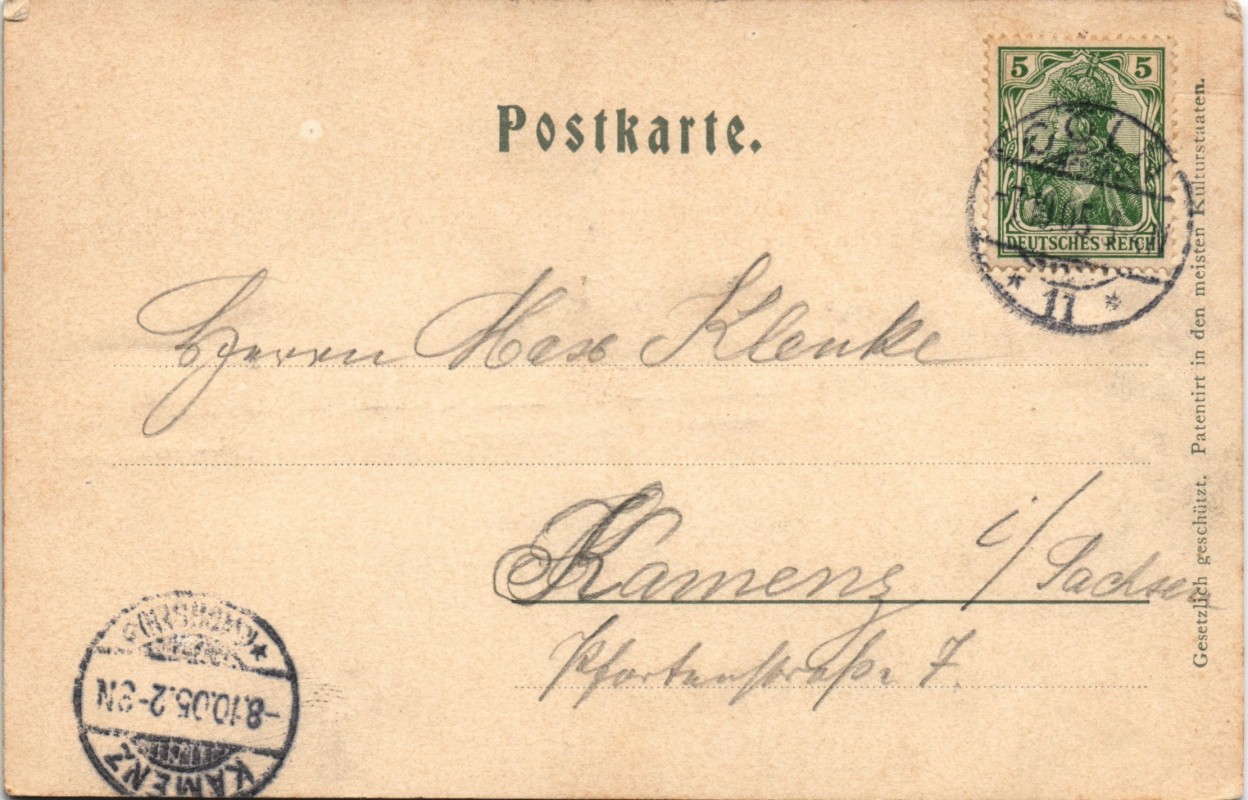 Postkarte.
5 5
DEUTSCHES REICH
11
Herrn Max Klenke
Kamenz i/Sachsen
Pfortenstraße 7.
Gesetzlich geschützt. Patentirt in den meisten Kulturstaaten.
(SACHSEN)
-8.10.05.2-8N
KAMENZ